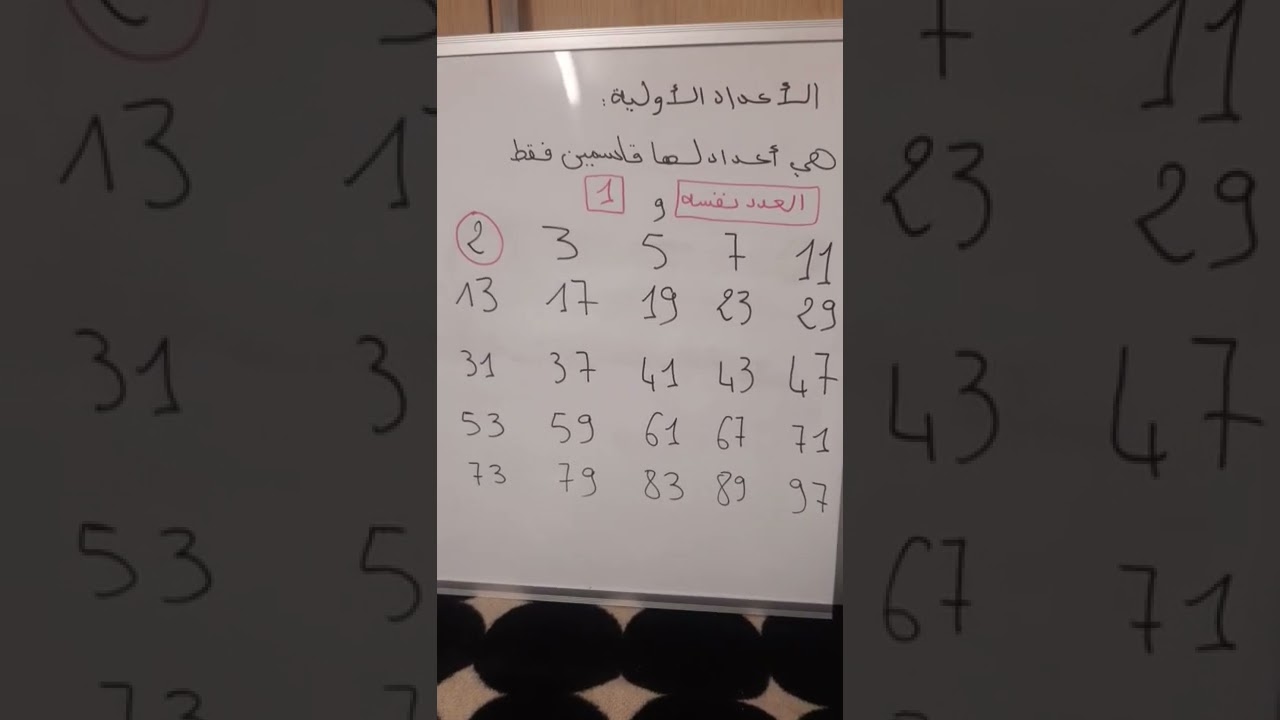 الأعداد الأولية:
هي أعداد لها قاسمين فقط
العدد نفسه و 1
2 3 5 7 11
13 17 19 23 29
31 37 41 43 47
53 59 61 67 71
73 79 83 89 97